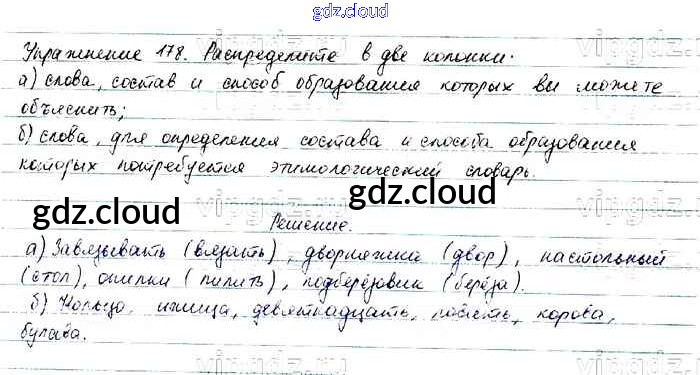 gdz.cloud
Упражнение 178. Распределите в две колонки.
а) слова, состав и способ образования которых вы можете
объяснить;
б) слова, для определения состава и способа образования
которых потребуется этимологический словарь.
gdz.cloud gdz.cloud
Решение.
а) Завязывать (вязать), дворняжка (двор), настольный
(стол), опилки (пилить), подберёзовик (берёза).
б) Кольцо, ижица, девятнадцать, повесть, корова,
булава.